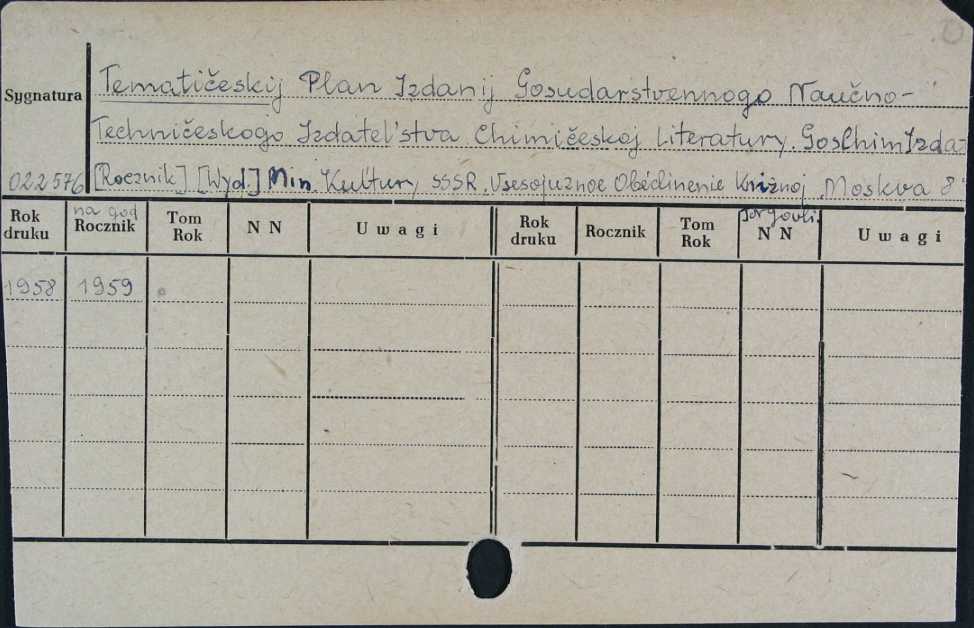 Tematičeskij Plan Izdanij Gosudarstvennogo Naučno-
Sygnatura
Techničeskogo Izdatel'stva Chimičeskoj Literatury. GosChimIzdat
022576 [Rocznik] [Wyd.] Min. Kul'tury SSSR. Vsesojuznoe Obédinenie Knižnoj Moskva 8°
Torgovli.
Rok druku na god Rocznik Tom Rok N N Uwagi Rok druku Rocznik Tom Rok N N Uwagi
1958 1959